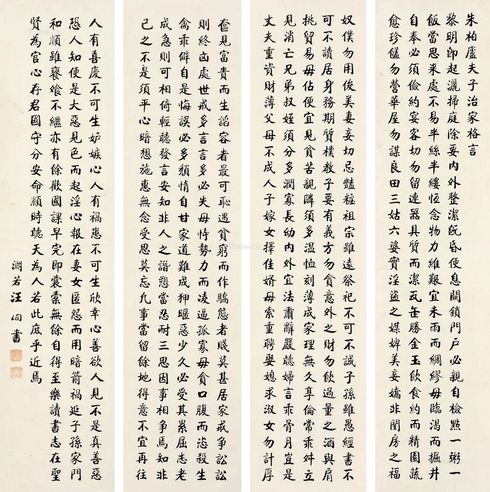 朱柏廬夫子治家格言
黎明即起灑掃庭除要內外整潔既昏便息關鎖門戶必親自檢點一粥一
飯當思來處不易半絲半縷恆念物力維艱宜未雨而綢繆毋臨渴而掘井
自奉必須儉約宴客切勿留連器具質而潔瓦缶勝金玉飲食約而精園蔬
愈珍饈勿營華屋勿謀良田三姑六婆實淫盜之媒婢美妾嬌非閨房之福
奴僕勿用俊美妻妾切忌豔粧祖宗雖遠祭祀不可不誠子孫雖愚經書不
可不讀居身務期質樸教子要有義方勿貪意外之財勿飲過量之酒與肩
挑貿易毋佔便宜見貧苦親隣須多溫恤刻薄成家理無久享倫常乖舛立
見消亡兄弟叔姪須分多潤寡長幼內外宜法肅辭嚴聽婦言乖骨肉豈是
丈夫重資財薄父母不成人子嫁女擇佳婿毋索重聘娶媳求淑女勿計厚
奩見富貴而生諂容者最可恥遇貧窮而作驕態者賤莫甚居家戒爭訟訟
則終凶處世戒多言言多必失毋恃勢力而凌逼孤寡毋貪口腹而恣殺生
禽乖僻自是悔誤必多頹惰自甘家道難成狎暱惡少久必受其累屈志老
成急則可相倚輕聽發言安知非人之譖愬當忍耐三思因事相爭焉知非
己之不是須平心暗想施惠無念受恩莫忘凡事當留餘地得意不宜再往
人有喜慶不可生妒嫉心人有禍患不可生欣幸心善欲人見不是真善惡
恐人知便是大惡見色而起淫心報在妻女匿怨而用暗箭禍延子孫家門
和順雖饔飧不繼亦有餘歡國課早完即囊橐無餘自得至樂讀書志在聖
賢為官心存君國守分安命順時聽天為人若此庶乎近焉
淵若汪洵書